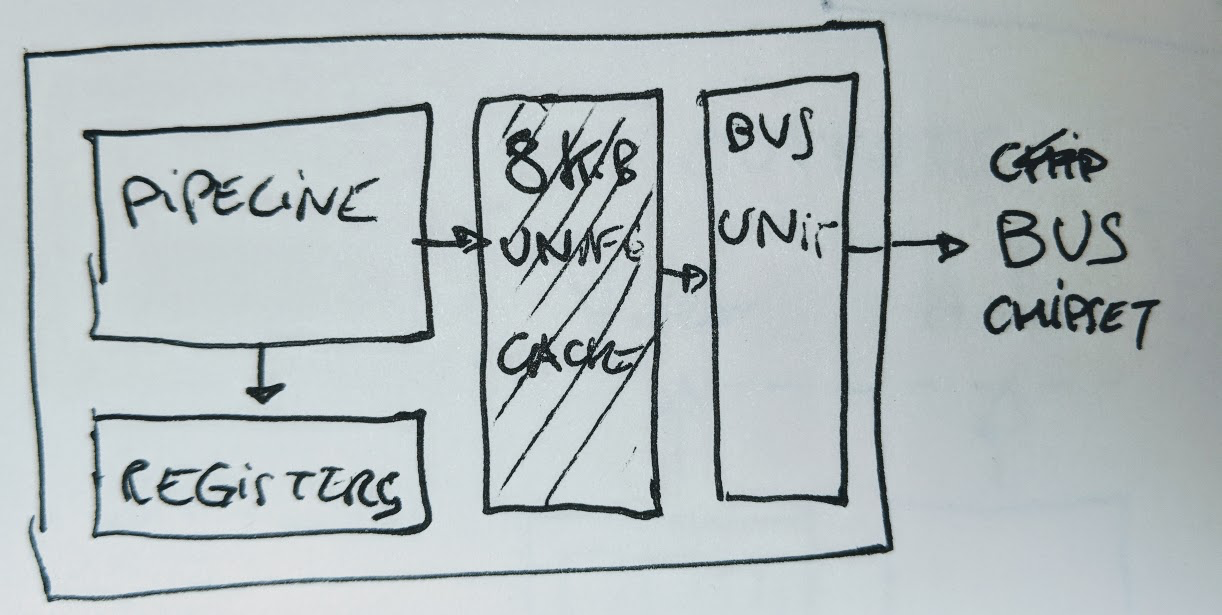 PiPELiNE
REGiSTERS
8 KB
UNIFE
CACHE
BUS
UNiT
BUS
CHiPSET